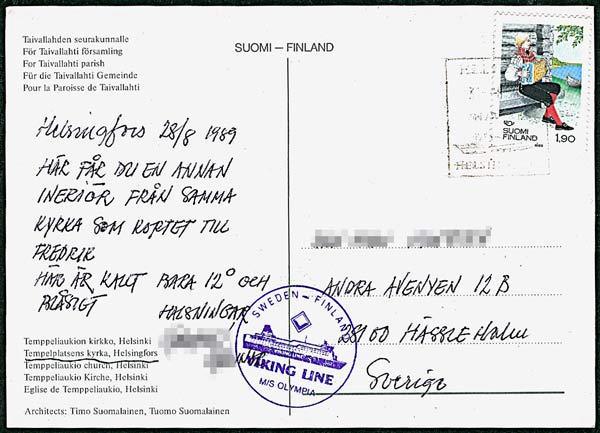 Taivallahden seurakunnalle
För Taivallahti församling
For Taivallahti parish
Für die Taivallahti Gemeinde
Pour la Paroisse de Taivallahti
SUOMI – FINLAND
SUOMI
FINLAND
1,90
Helsingfors 28/8 1989
HÄR FÅR DU EN ANNAN
INERIÖR FRÅN SAMMA
KYRKA SOM KORTET TILL
FREDRIK
HÄR ÄR KALLT BARA 12° OCH
BLÅSIGT HÄLSNINGAR
ANDRA AVENYEN 12 B
28100 HÄSSLEHOLM
Sverige
SWEDEN – FINLAND
VIKING LINE
M/S OLYMPIA
Temppeliaukion kirkko, Helsinki
Tempelplatsens kyrka, Helsingfors
Temppeliaukio church, Helsinki
Temppeliaukio Kirche, Helsinki
Eglise de Temppeliaukio, Helsinki
Architects: Timo Suomalainen, Tuomo Suomalainen